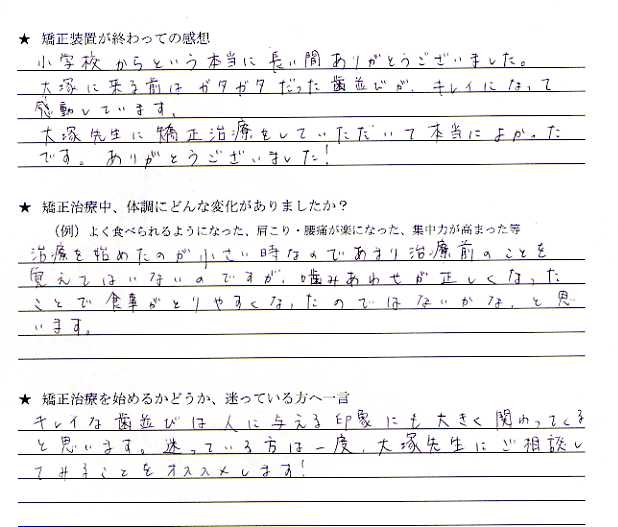 ★ 矯正装置が終わっての感想
小学校からという本当に長い間ありがとうございました。
大塚に来る前はガタガタだった歯並びが、キレイになって
感動しています。
大塚先生に矯正治療をしていただいて本当によかった
です。ありがとうございました!
★ 矯正治療中、体調にどんな変化がありましたか?
（例）よく食べられるようになった、肩こり・腰痛が楽になった、集中力が高まった等
治療を始めたのが小さい時なのであまり治療前のことを
覚えてはいないのですが、噛みあわせが正しくなった
ことで食事がとりやすくなったのではないかな、と思
います。
★ 矯正治療を始めるかどうか、迷っている方へ一言
キレイな歯並びは人に与える印象にも大きく関わってくる
と思います。迷っている方は一度、大塚先生にご相談し
てみることをオススメします!